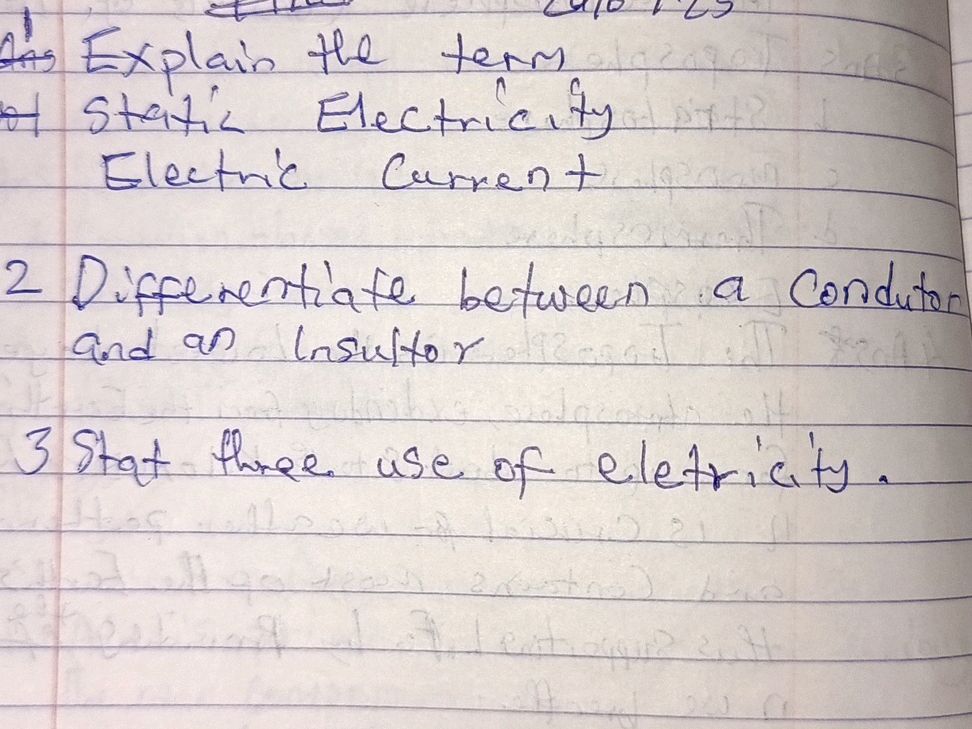 1 Explain the term
Static Electricity
Electric Current
2 Differentiate between a Condutor
and an Insultor
3 Stat three use of eletricity.